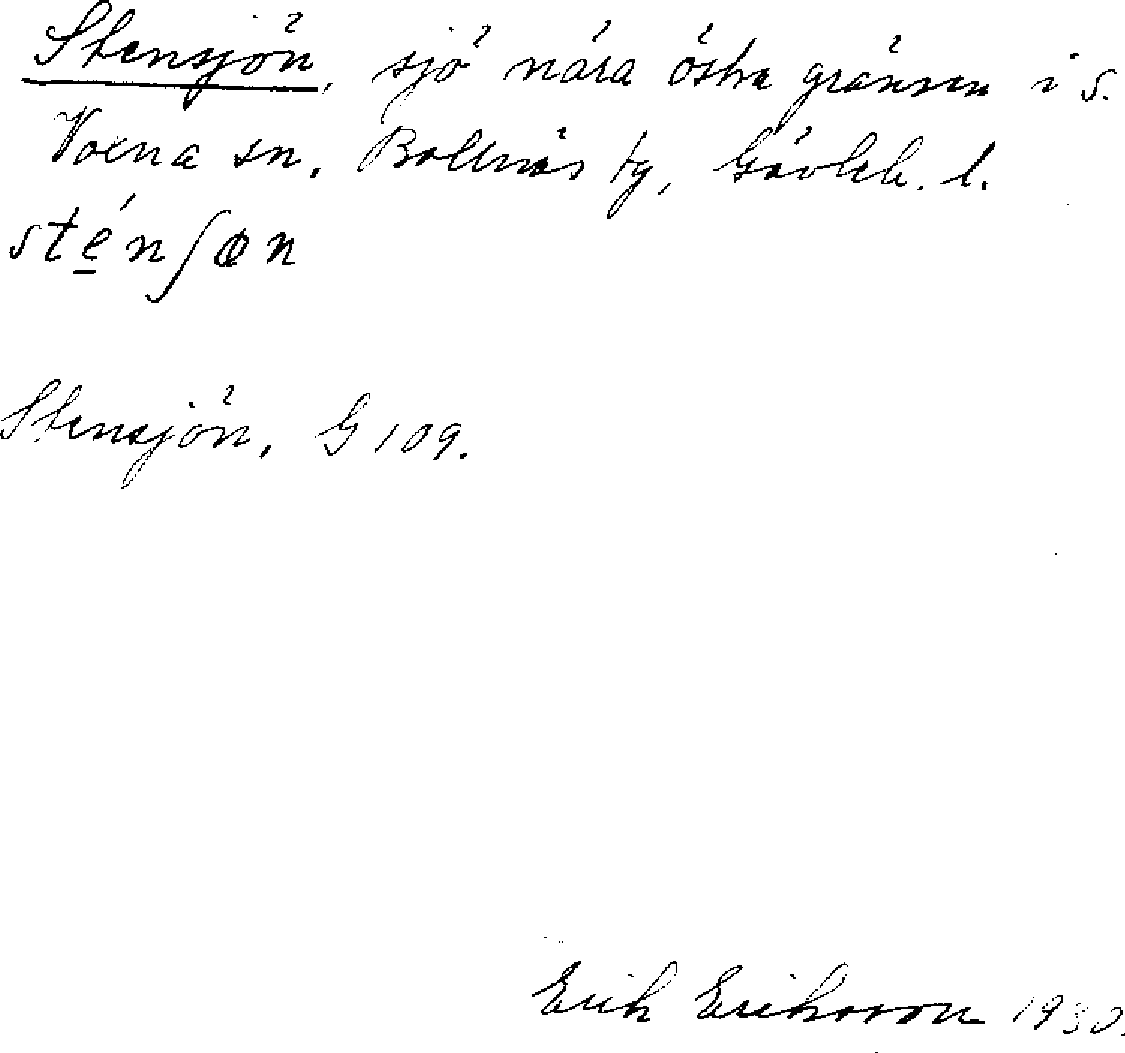 Stensjön, sjö nära östra gränsen i s.
Voxna sn, Bollnäs tg, Gävleb. l.
sténʃøn
Stensjön, G 109.
Erik Eriksson 1930.